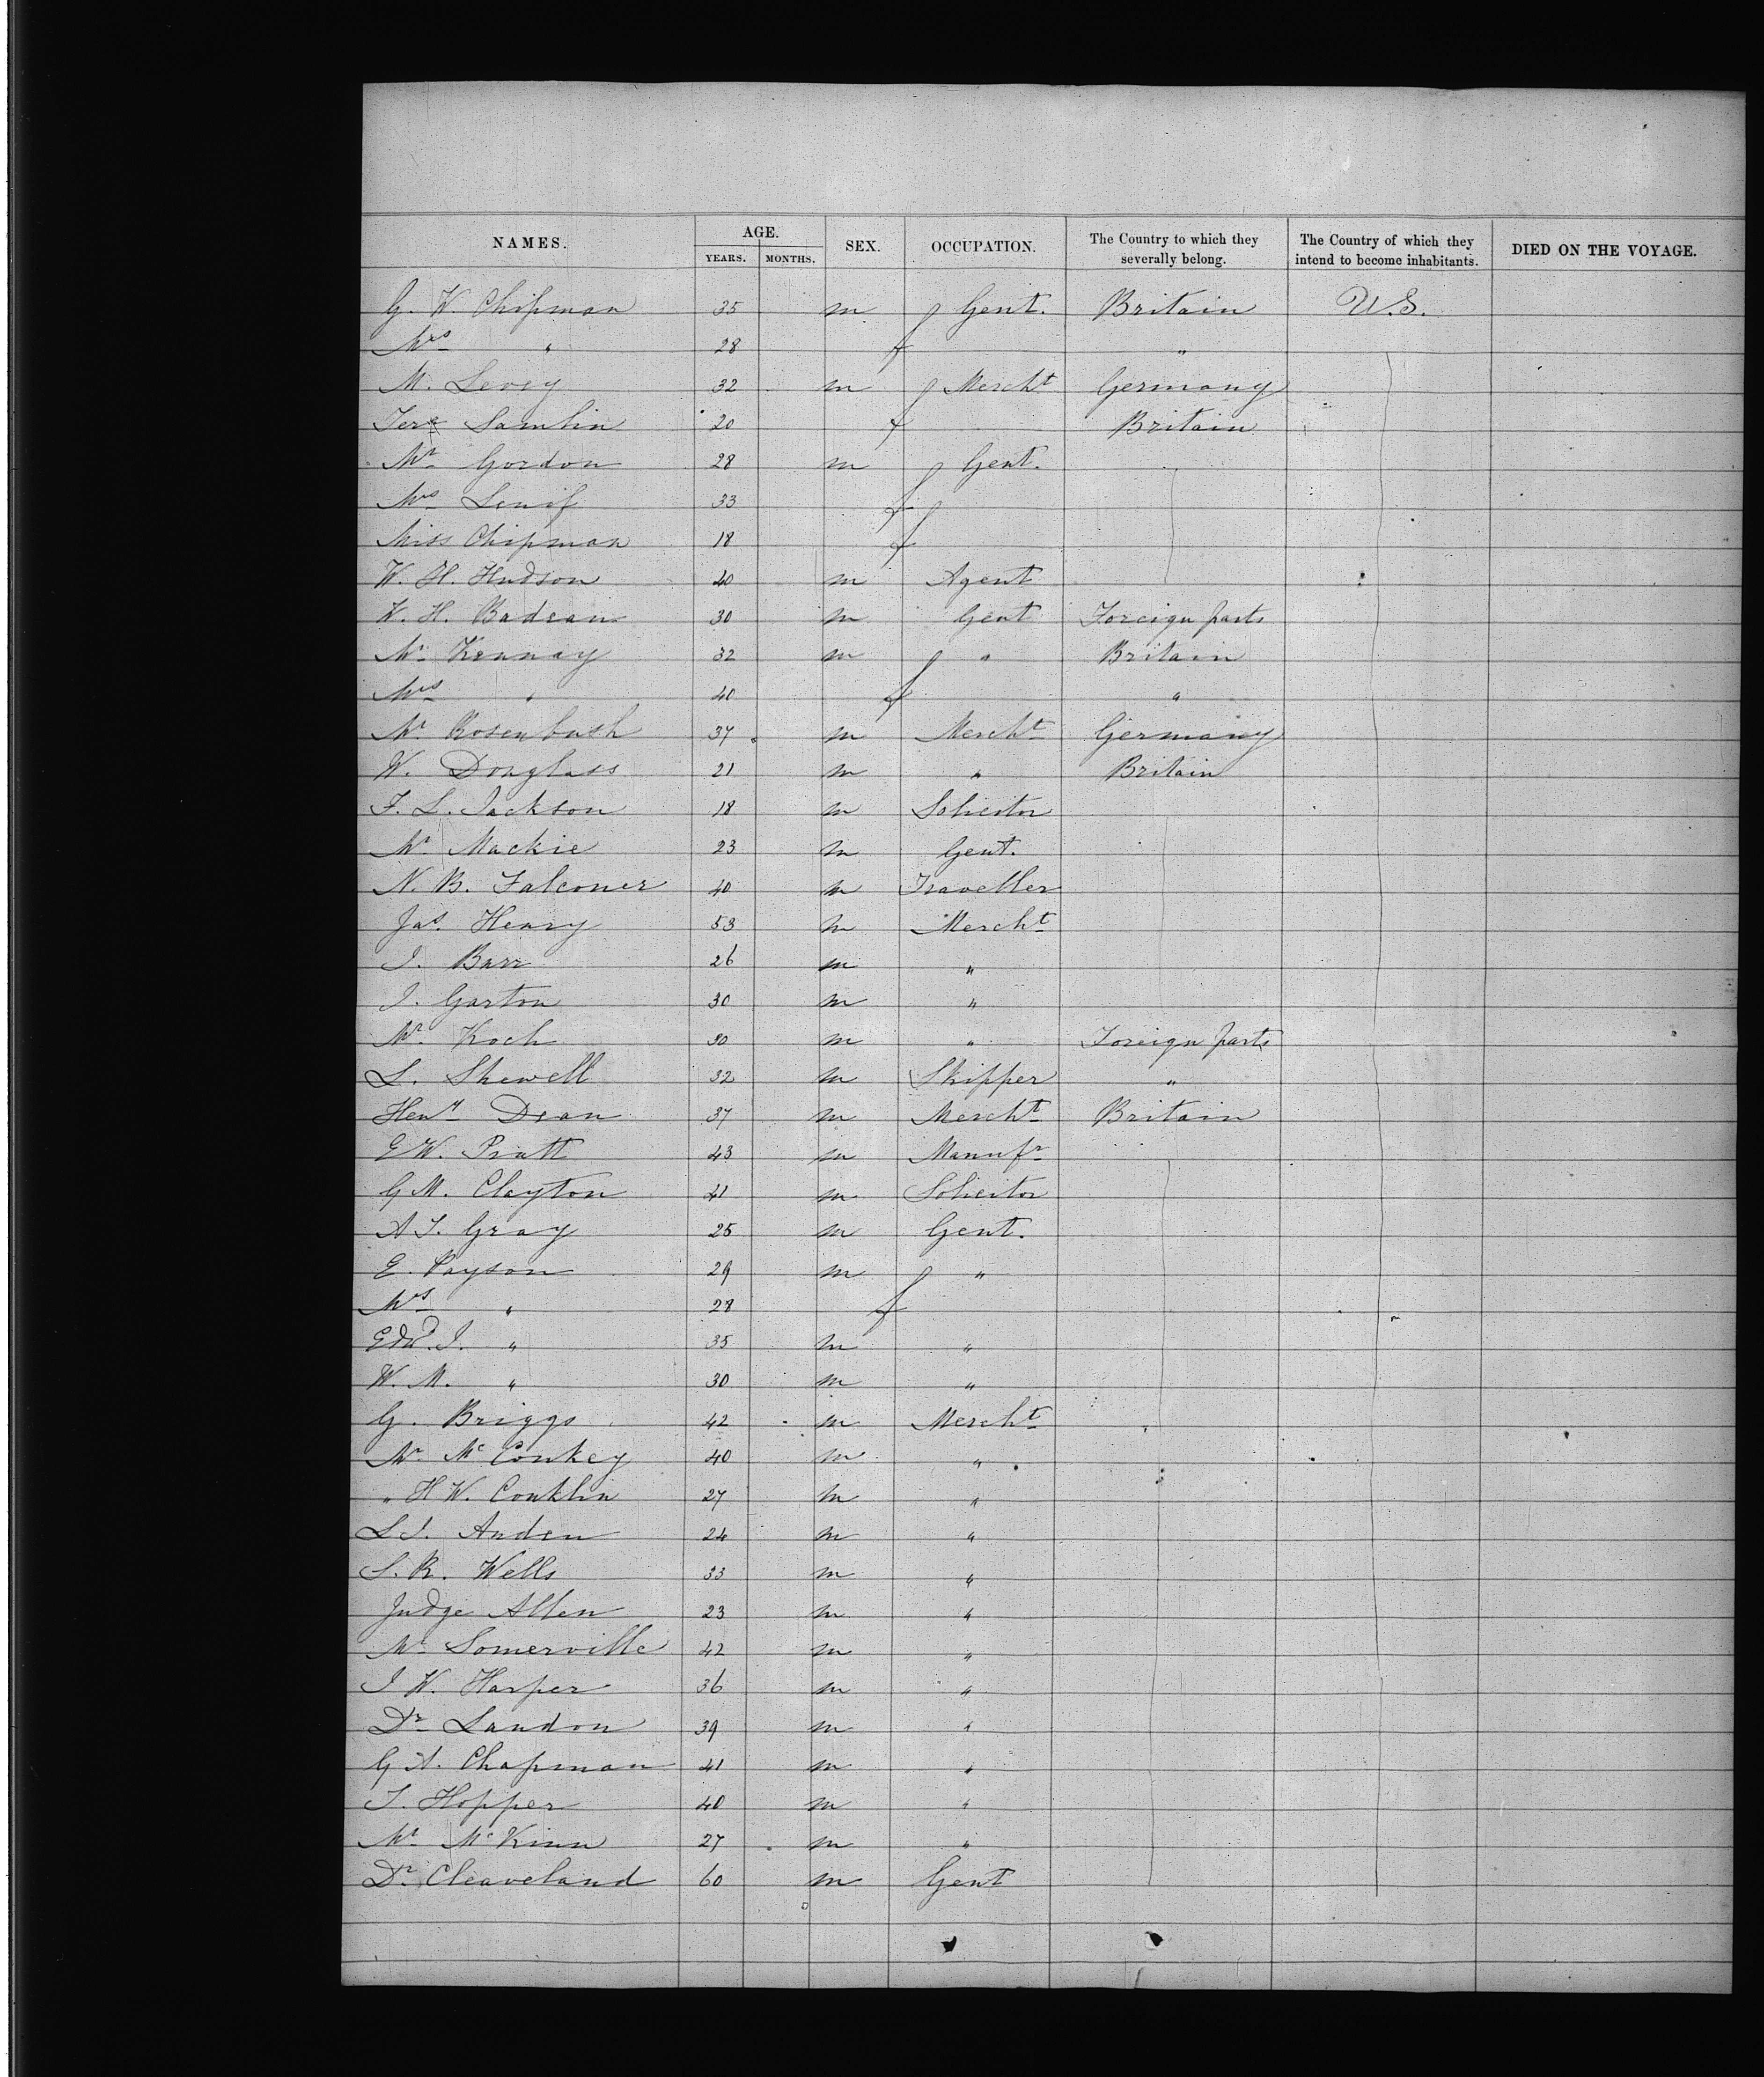 NAMES. AGE. SEX. OCCUPATION. The Country to which they severally belong. The Country of which they intend to become inhabitants. DIED ON THE VOYAGE.
YEARS. MONTHS.
G. W. Chipman 35 m Gent. Britain U.S.
Mrs " 28 f "
M. Levey 32 m Mercht Germany
Samlin 20 f Britain
Mr Gordon 28 m Gent.
Mrs 33 f
Miss Chipman 18 f
W. H. Hudson 40 m Agent
W. H. Badeau 30 m Gent Foreign parts
Mr Kennay 32 m " Britain
Mrs " 40 f "
Mr Rosenbush 37 m Mercht Germany
W. Douglass 21 m " Britain
F. L. Jackson 18 m Solicitor
Mr Mackie 23 m Gent.
N. B. Falconer 40 m Traveller
Jas. Henry 53 m Mercht
J. Barr 26 m "
J. Garton 30 m "
Mr. Koch 30 m " Foreign parts
L. Shewell 32 m Skipper "
Heny Dean 37 m Mercht Britain
E W. Pratt 43 m Manufr
G M. Clayton 41 m Solicitor
A T. Gray 25 m Gent.
E. Payson 29 m "
Mrs " 28 f
Edwd. J. " 35 m "
W. M. " 30 m "
G. Briggs 42 m Mercht
Mr McConkey 40 m "
" H W. Conklin 27 m "
L J. Arden 24 m "
S. R. Wells 33 m "
Judge Allen 23 m "
Mr Somerville 42 m "
J W. Harper 36 m "
Dr Landon 39 m "
G A. Chapman 41 m "
T. Hopper 40 m "
Mr McKinn 27 m "
Dr Cleaveland 60 m Gent